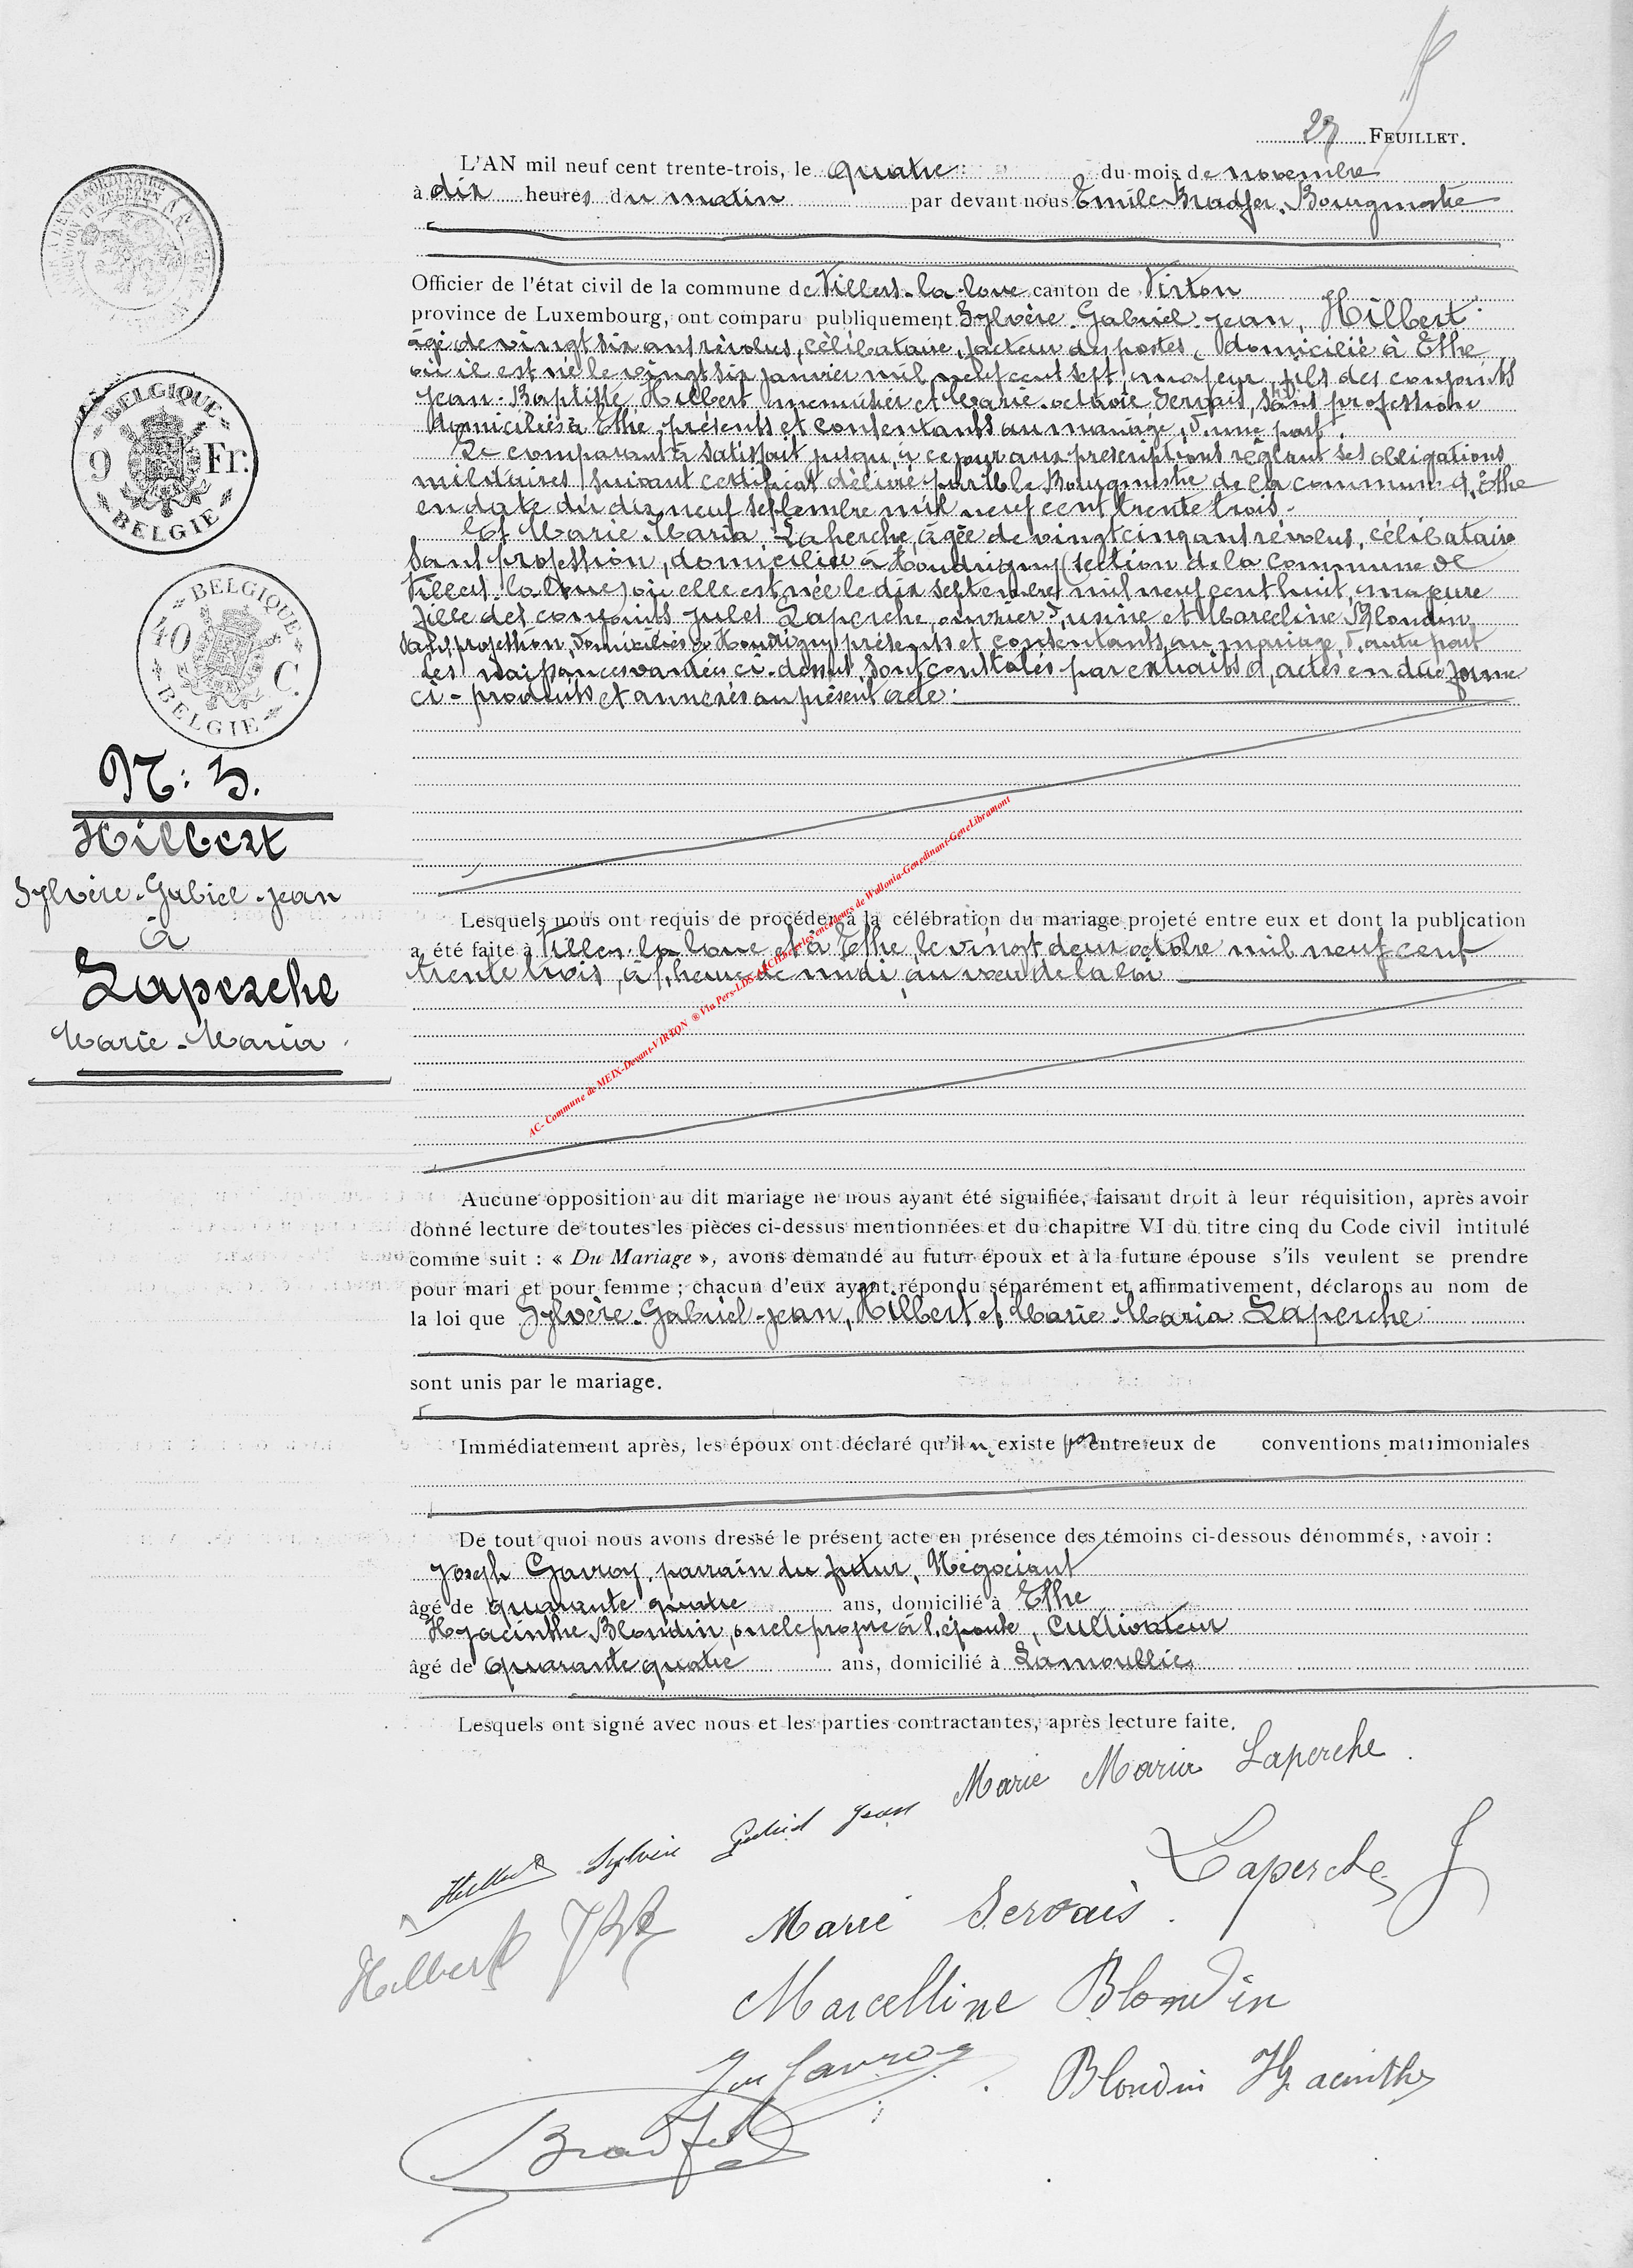 27 FEUILLET.
L'AN mil neuf cent trente-trois, le quatre du mois de novembre
à dix heures du matin par devant nous Emile Bradfer, Bourgmestre
Officier de l'état civil de la commune de Villers-la-loue canton de Virton
province de Luxembourg, ont comparu publiquement Sylvère-Gabriel-Jean, Hilbert
âgé de vingt six ans révolus, célibataire, facteur des postes, domicilié à Ethe
où il est né le vingt six janvier mil neuf cent sept, majeur, fils des conjoints
Jean-Baptiste Hilbert menuisier et Marie-octavie Servais, sans profession
domiciliés à Ethe, présents et consentants au mariage, d'une part.
Le comparant a satisfait jusqu'à ce jour aux prescriptions réglant ses obligations
militaires suivant certificat délivré par le Bourgmestre de la commune d'Ethe
en date du dix neuf septembre mil neuf cent trente trois.
Et Marie-Maria Laperche, âgée de vingt cinq ans révolus, célibataire
sans profession, domiciliée à Houdrigny (section de la commune de
Villers-la-loue) où elle est née le dix septembre mil neuf cent huit, majeure
fille des conjoints Jules Laperche, ouvrier d'usine et Marceline Blondin,
sans profession, domiciliés à Houdrigny présents et consentants au mariage, d'autre part
Les naissances vantées ci-dessus sont constatés par extraits d'actes en due forme
ci-produits et annexés au présent acte:
BELGIQUE
9 Fr.
BELGIE
BELGIQUE
40 C.
BELGIE
N: 3.
Hilbert
Sylvère-Gabiel-Jean
à
Laperche
Marie-Maria
AC- Commune de MEIX-Devant-VIRTON ® Via Pers-LDS-ARCH les encodeurs de Wallonia-Genedinant-GeneLibramont
Lesquels nous ont requis de procéder à la célébration du mariage projeté entre eux et dont la publication
a été faite à Villers-la-loue et à Ethe, le vingt deux octobre mil neuf cent
trente trois, à l'heure de midi, au voeu de la loi
Aucune opposition au dit mariage ne nous ayant été signifiée, faisant droit à leur réquisition, après avoir
donné lecture de toutes les pièces ci-dessus mentionnées et du chapitre VI du titre cinq du Code civil intitulé
comme suit : « Du Mariage », avons demandé au futur époux et à la future épouse s'ils veulent se prendre
pour mari et pour femme ; chacun d'eux ayant répondu séparément et affirmativement, déclarons au nom de
la loi que Sylvère-Gabriel-Jean, Hilbert et Marie-Maria Laperche
sont unis par le mariage.
Immédiatement après, les époux ont déclaré qu'il n'existe pas entre eux de conventions matrimoniales
De tout quoi nous avons dressé le présent acte en présence des témoins ci-dessous dénommés, savoir :
Joseph Gavroy, parrain du futur, Négociant
âgé de quarante quatre ans, domicilié à Ethe
Hyacinthe Blondin, oncle propre à l'épouse, Cultivateur
âgé de quarante quatre ans, domicilié à Lamouilly
Lesquels ont signé avec nous et les parties contractantes, après lecture faite.
Marie Maria Laperche
Hilbert Sylvère Gabriel Jean
Laperche J
Hilbert JBte
Marie Servais.
Marcelline Blondin
Jos Gavroy
Blondin Hyacinthe
Bradfer